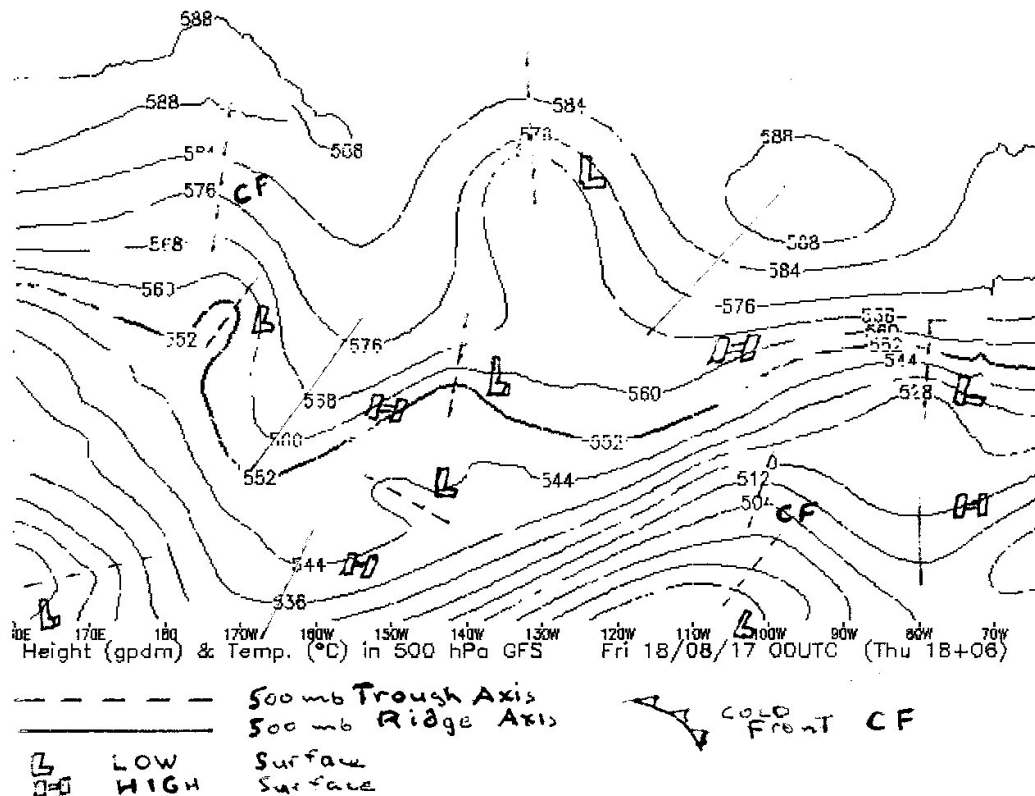 588
588
588
584
584
576
CF
570
L
588
588
584
576
568
560
552
L
576
568
560
552
H
L
560
552
H
568
560
552
544
528
L
544
L
H
544
536
512
504
CF
H
L
L
170E 180 170W 160W 150W 140W 130W 120W 110W 100W 90W 80W 70W
Height (gpdm) & Temp. (°C) in 500 hPa GFS Fri 18/08/17 00UTC (Thu 18+06)
500 mb Trough Axis
500 mb Ridge Axis
COLD Front CF
L LOW Surface
H HIGH Surface